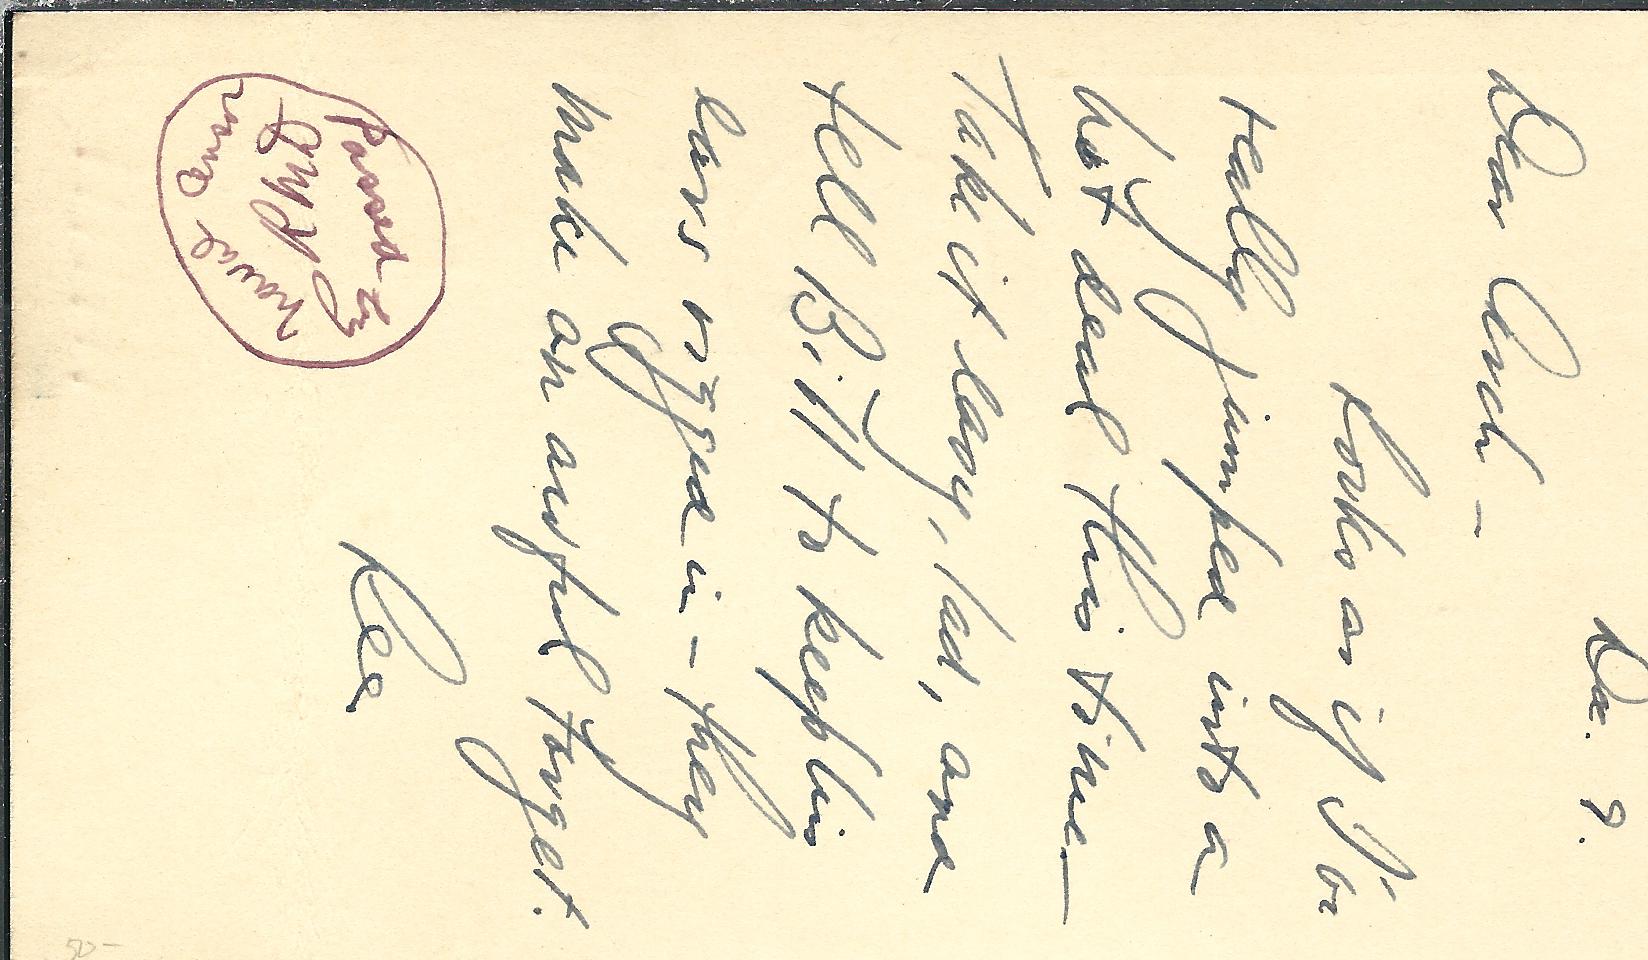 Dec. 9.
Dear Arch —
Looks as if I've
really jumped into a
hot deal this time —
Take it easy, lad, and
tell Bill to keep his
ears rigged in — they
make an awful target.
Lee
Passed by
Naval Censor
50-